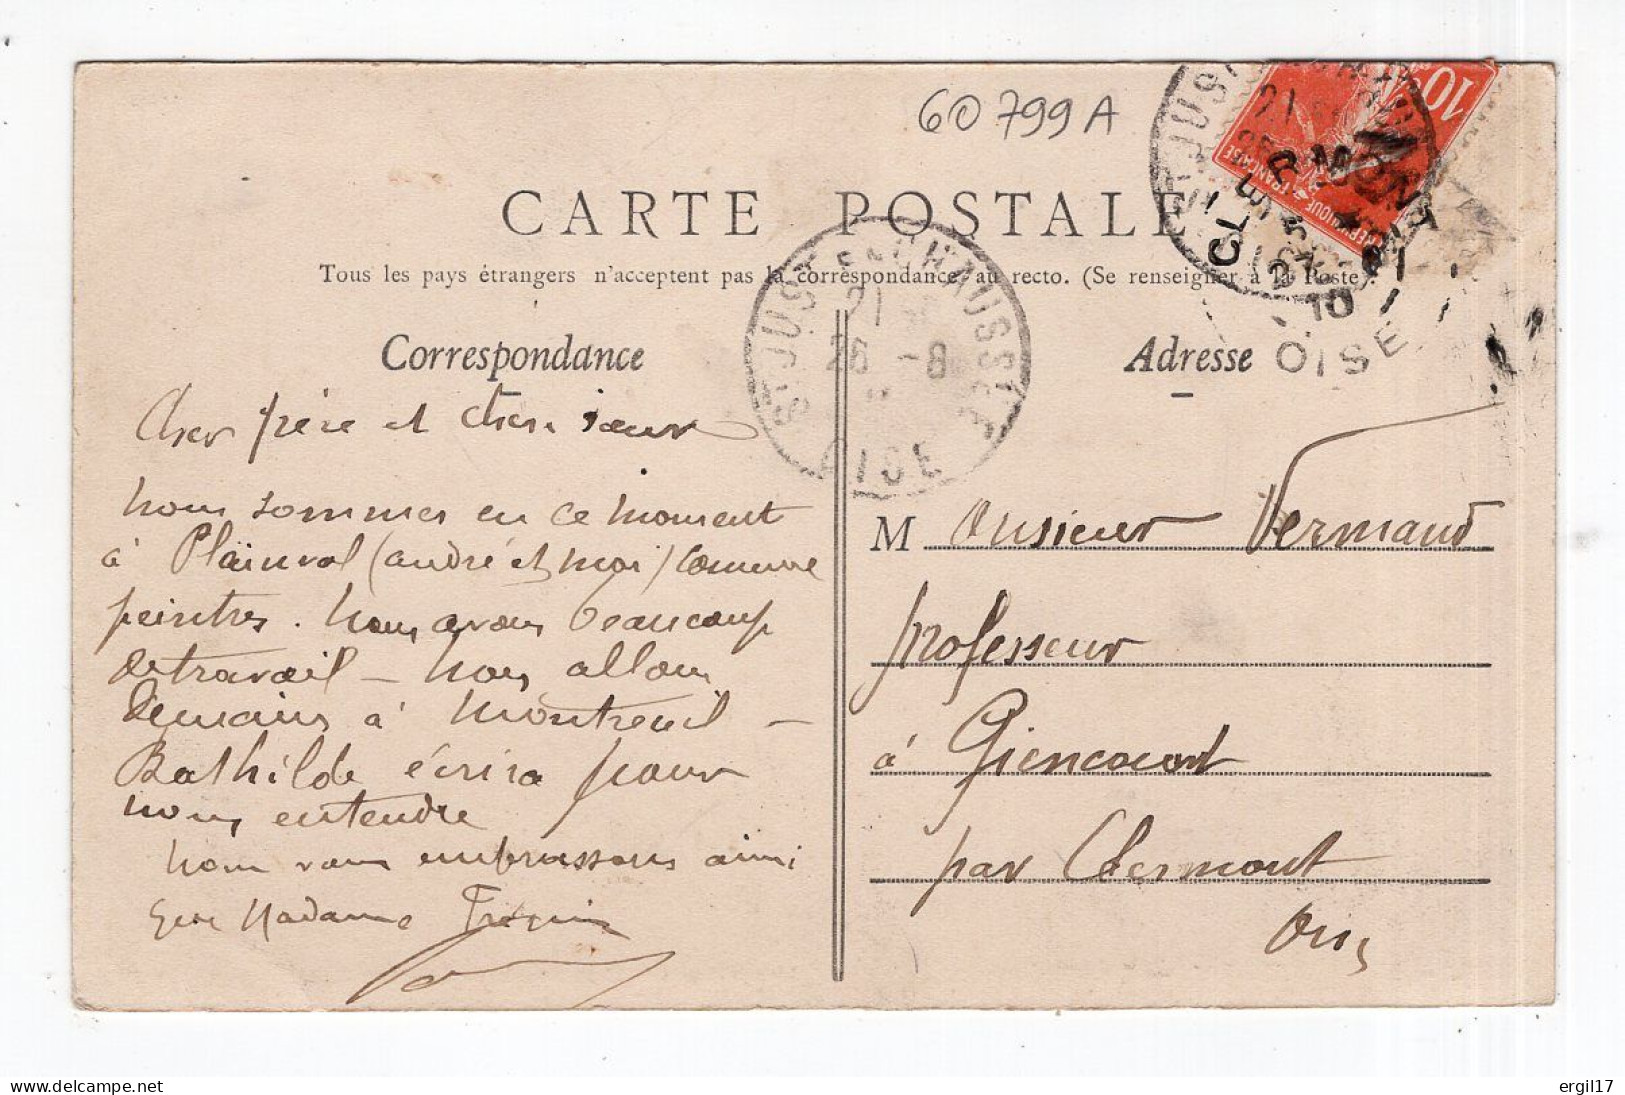 60799A
CARTE POSTALE
Tous les pays étrangers n'acceptent pas la correspondance au recto. (Se renseigner à la Poste).
Correspondance
Cher père et chère sœur
nous sommes en ce moment
à Plainval (andré et moi) comme
peintres. nous avons beaucoup
de travail - nous allons
demain à Montreuil -
Bathilde écrira pour
nous entendre
nous vous embrassons ainsi
que Madame
Adresse
Monsieur Vermand
professeur
à Giencourt
par Clermont
Oise
ST JUST EN CHAUSSÉE
21
26 - 8
OISE
10
CLERMONT
10
OISE
delcampe.net
ergil17